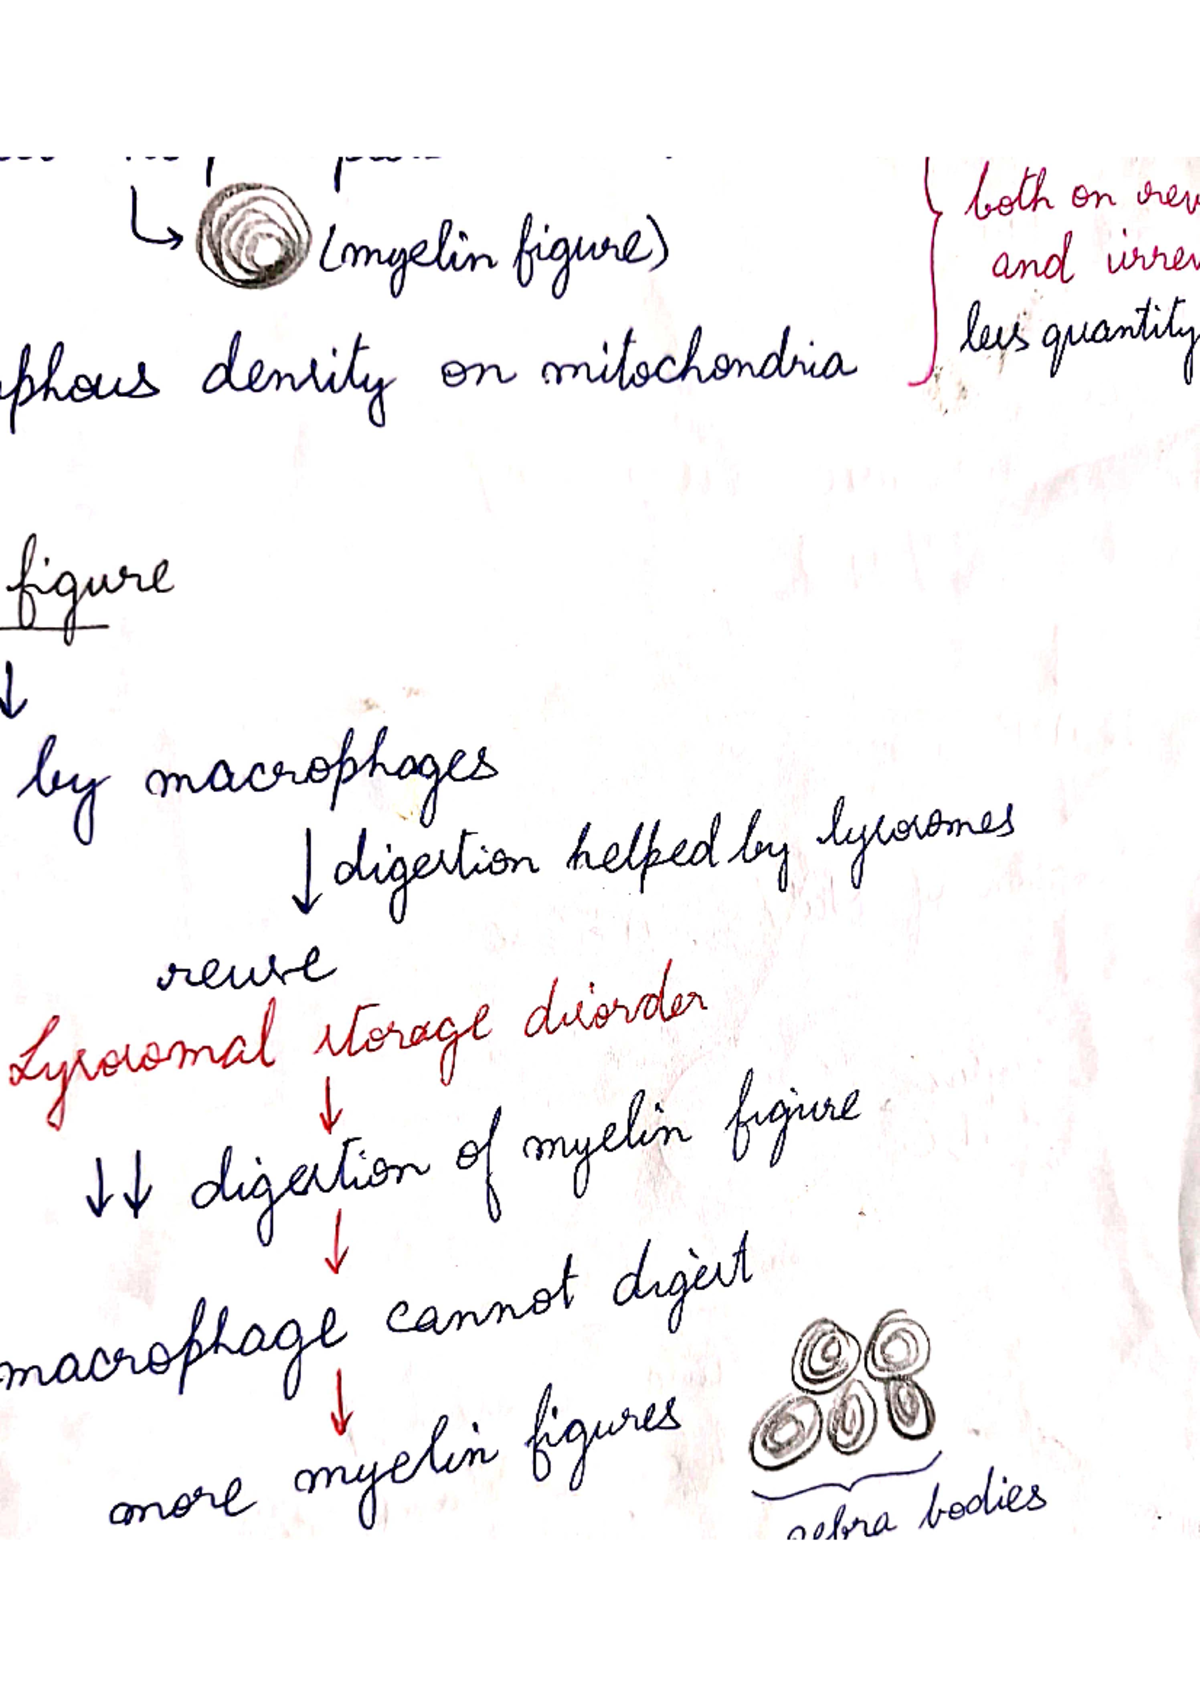 both on rev
(myelin figure)
and irrev
less quantity
phous density on mitochondria
figure
↓
by macrophages
↓ digestion helped by lysosomes
reuse
Lysosomal storage disorder
↓
↓↓ digestion of myelin figure
↓
macrophage cannot digest
↓
more myelin figures
zebra bodies